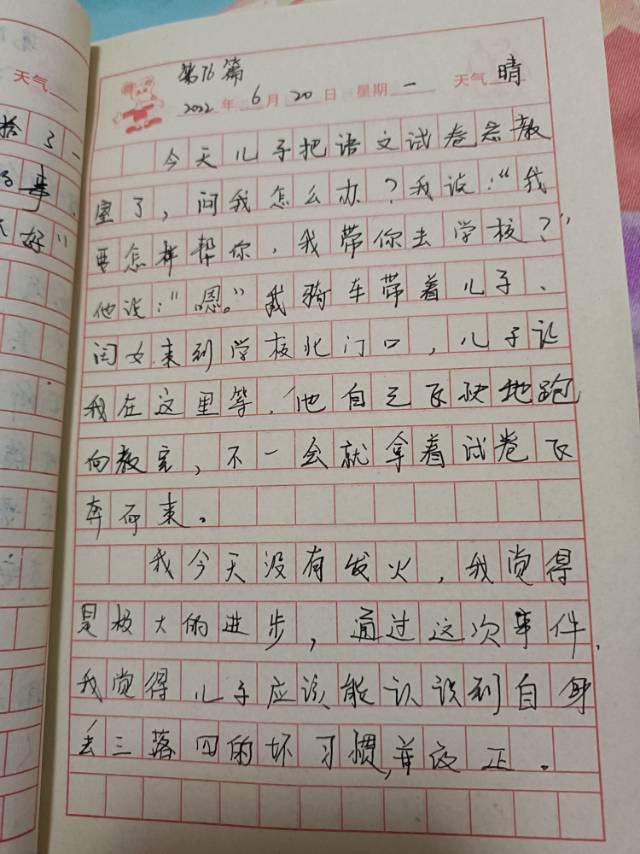 天气
拾了一
的事
不好"
第76篇
2022年6月20日 星期一 天气晴
今天儿子把语文试卷忘教
室了，问我怎么办？我说："我
要怎样帮你，我带你去学校？"
他说："嗯。"我骑车带着儿子、
闺女来到学校北门口，儿子让
我在这里等，他自己飞快地跑
向教室，不一会就拿着试卷飞
奔而来。
我今天没有发火，我觉得
是极大的进步，通过这次事件，
我觉得儿子应该能认识到自身
丢三落四的坏习惯，并改正。